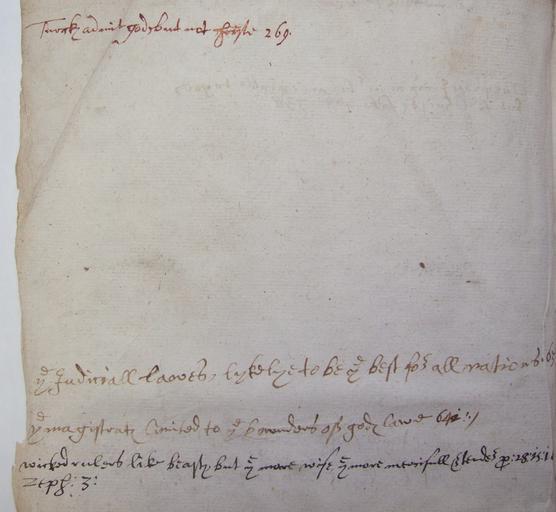 Turcks admit god but not Christe 269.
yᵉ Judiciall lawes, lykelye to be yᵉ best for all nations. 6
yᵉ magistrate limited to yᵉ bounders of gods lawe 641:/
wicked rulers like beasts but yᵉ more wise yᵉ more mercifull pr: 28:15:1
Zeph: 3: